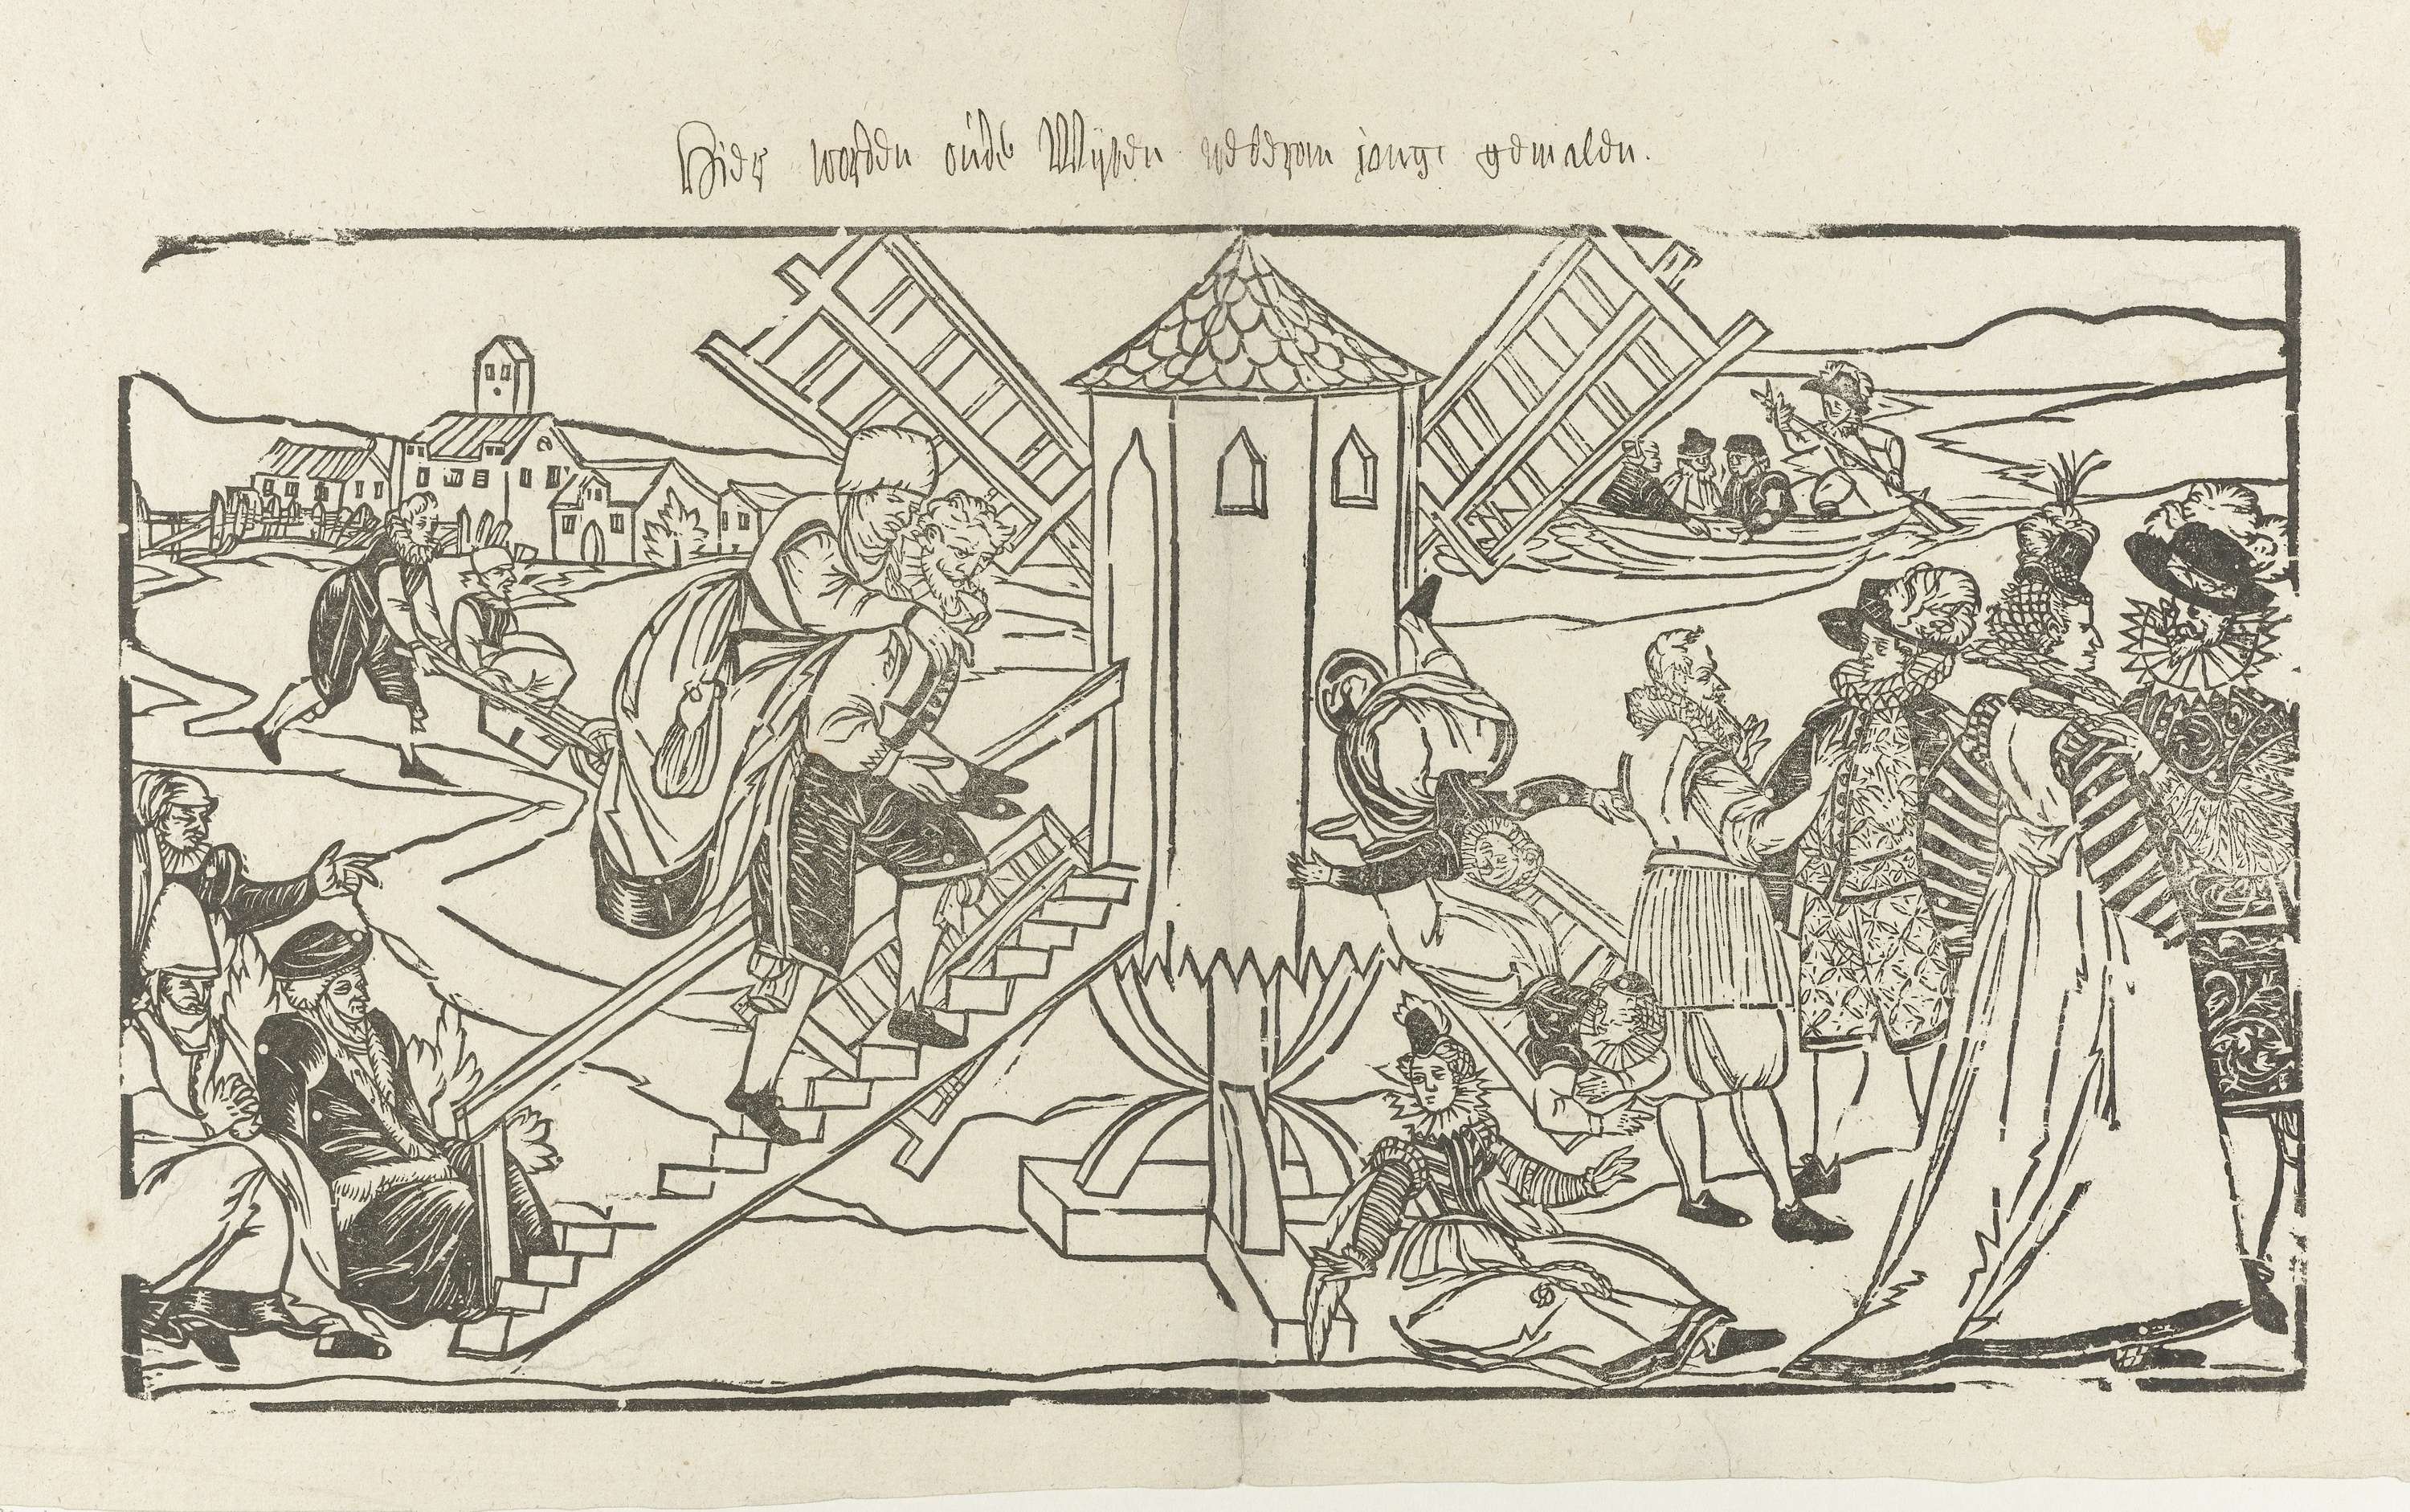 Hier worden oude Wijven wederom jongc gemalen.